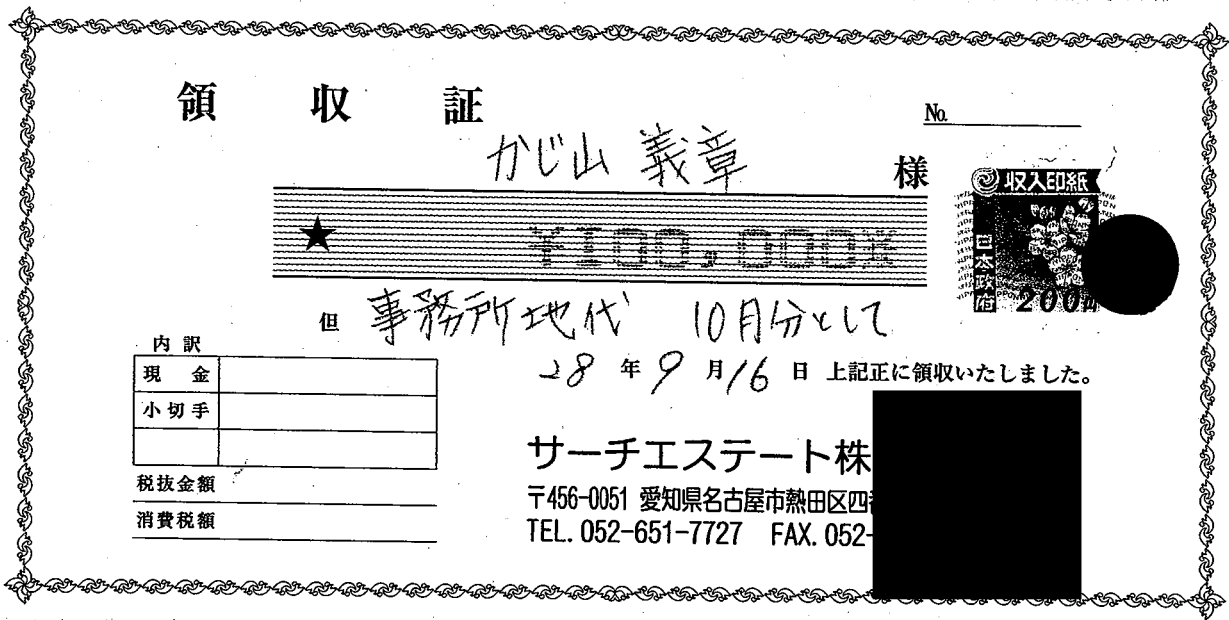 領 収 証
No.
かじ山 義章 様
収入印紙
日本政府
200円
★ ¥100,000※
但 事務所地代 10月分として
28 年 9 月 16 日 上記正に領収いたしました。
内 訳
現 金
小 切 手
税抜金額
消費税額
サーチエステート株
〒456-0051 愛知県名古屋市熱田区四
TEL. 052-651-7727 FAX. 052-